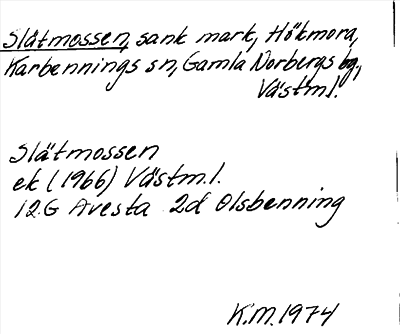 Slåtmossen, sank mark, Hökmora,
Karbennings sn, Gamla Norbergs bg,
Västm.l.
Slåtmossen
ek (1966) Västm.l.
12G Avesta 2d Olsbenning
K.M. 1974